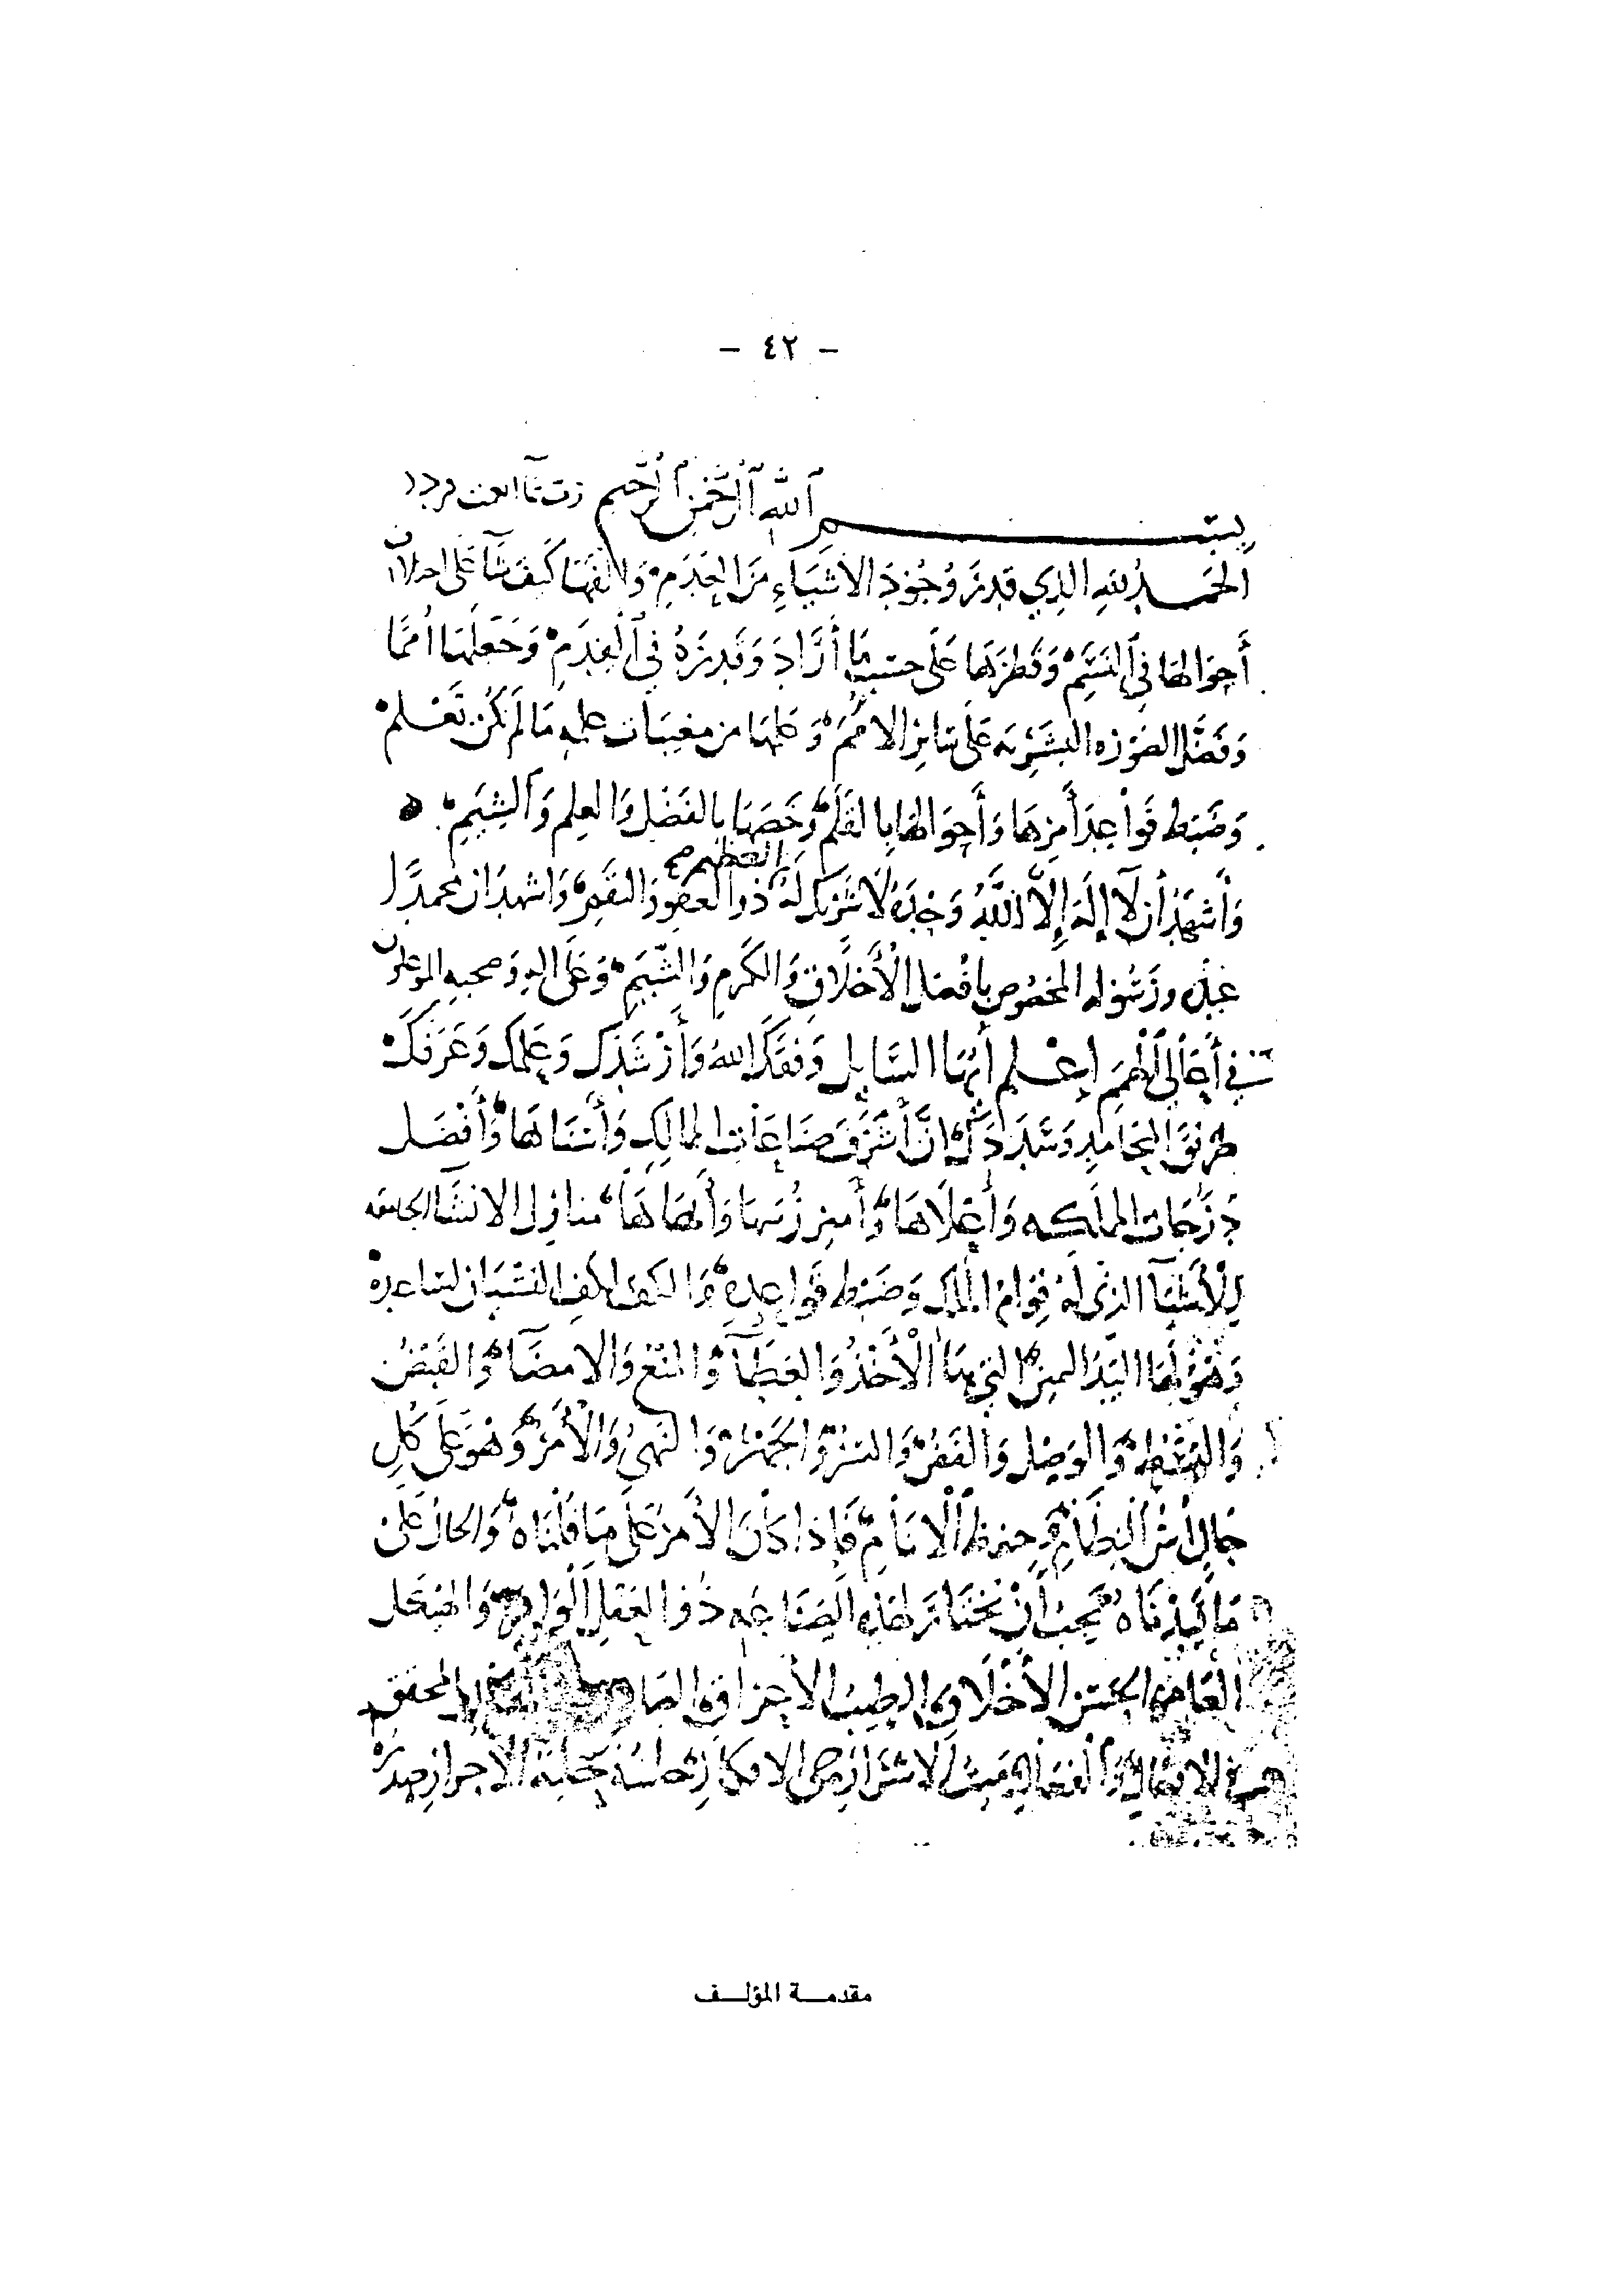 - ٤٢ -
بسم الله الرحمن الرحيم
الحمد لله الذي قدر وجود الأشياء من العدم والفها كيف شآ على اختلاف
أحوالها في النسم وفطرها على حسب ما أراد وقدره في القدم وجعلها امما
وفضل الصوره البشريه على سائر الأمم وعلمها من مغيبات علمه ما لم تكن تعلم
وضبط قواعد أمرها وأحوالها بالقلم وخصها بالفضل والعلم والشيم
وأشهد أن لا إله إلا الله وحده لا شريك له ذو العفو والنقم واشهد ان محمدا
العظيم صح
عبده ورسوله المخصوص بافضل الأخلاق والكرم والشيم وعلى اله وصحبه
في أعالي القمم اعلم أيها السايل وفقك الله وأرشدك وعلمك وعرفك
طريق المحامد وسددك إن أشرف صناعات الممالك وأسناها وأفضل
درجات المملكه وأعلاها وأميز رتبها وأبهاها منازل الانشا
للأشيآ الذي له قوام الملك وضبط قواعده والكف لساعده
وهو لها اليد اليمنى التي بها الأخذ والعطآ والمنع والامضآ والقبض
والبسط والوصل والقص والسر والجهر والنهي والأمر وهو على كل
حال أس النظام في حفظ الأنام فإذا كان الأمر على ما قلناه والحال على
ما قيدناه يجب أن يختار لهذه الصناعه ذو العقل الوافر والمنتحل
الحسن الأخلاق الطيب الأعراق المحقق
في الأقوال والفعال
مقدمة المؤلف